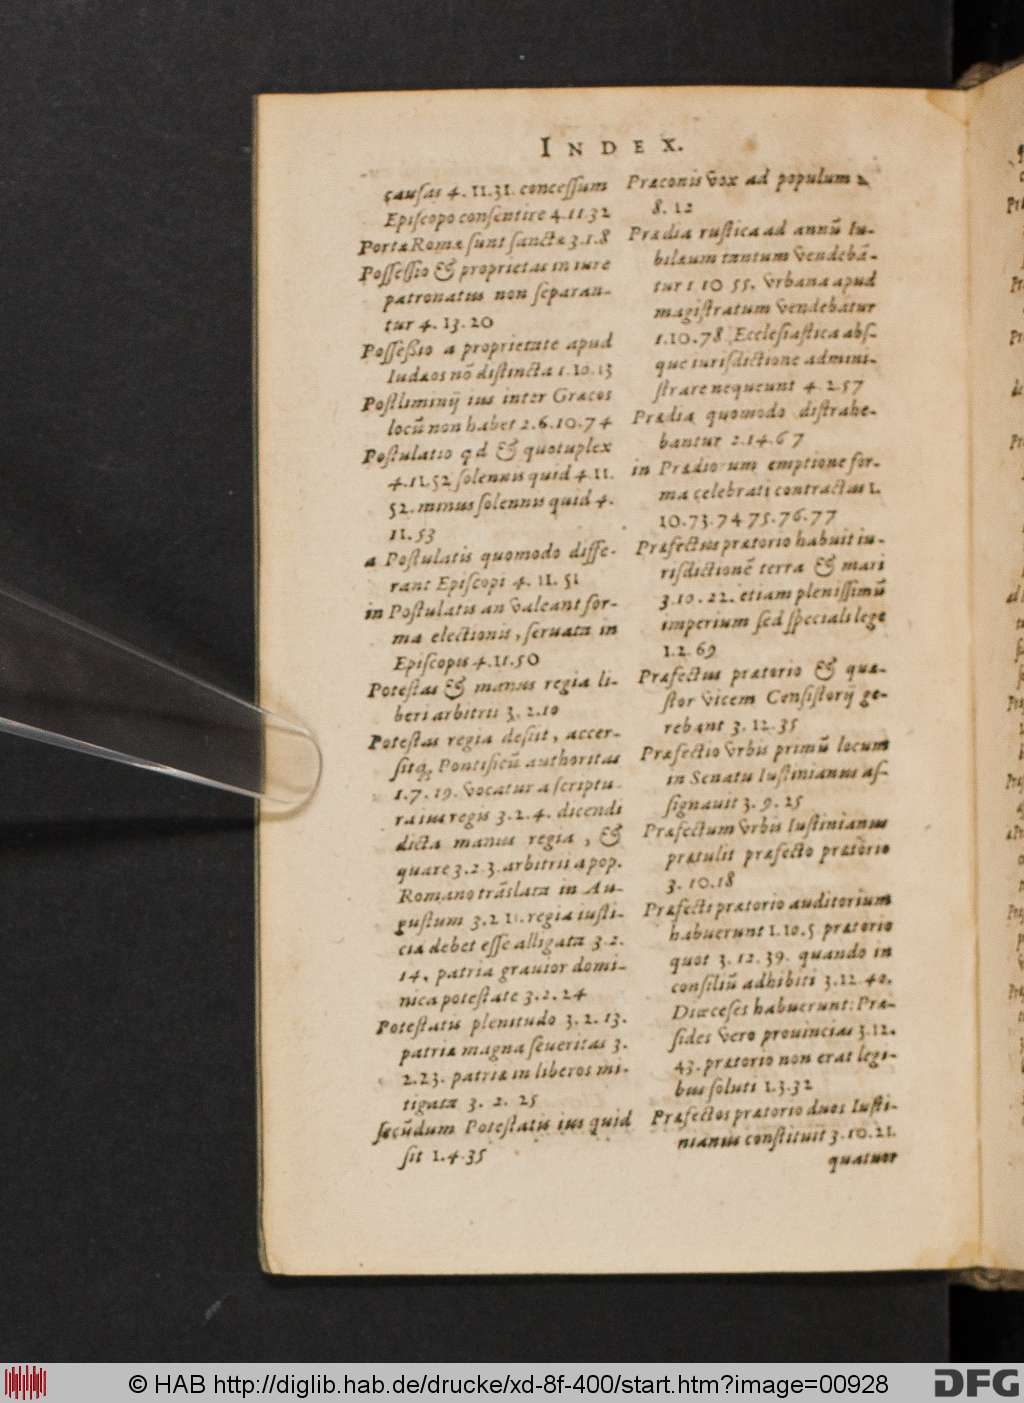 INDEX.
causas 4.11.31. concessum
Episcopo consentire 4.11.32
Portæ Romæ sunt sanctæ 3.1.8
Possessio & proprietas in iure
patronatus non separan-
tur 4.13.20
Possessio a proprietate apud
Iudæos nō distincta 1.10.13
Postliminij ius inter Græcos
locū non habet 2.6.10.74
Postulatio qd & quotuplex
4.11.52 solennis quid 4.11.
52. minus solennis quid 4.
11.53
a Postulatis quomodo diffe-
rant Episcopi 4.11.51
in Postulatis an valeant for-
ma electionis, seruata in
Episcopis 4.11.50
Potestas & manus regia li-
beri arbitrii 3.2.10
Potestas regia desiit, acces-
sitq; Pontificū authoritas
1.7.19. vocatur a scriptu-
ra ius regis 3.2.4. dicendi
dicta manus regia, &
quare 3.2.3. arbitrii a pop.
Romano trāslata in Au-
gustum 3.2 11. regia iusti-
cia debet esse alligata 3.2.
14. patria grauior domi-
nica potestate 3.2.24
Potestatis plenitudo 3.2.13.
patria magna seueritas 3.
2.23. patria in liberos mi-
tigata 3.2.25
secūdum Potestatis ius quid
sit 1.4.35
Præconis vox ad populum 2
8.12
Prædia rustica ad annū Iu-
bilæum tantum vendebā-
tur 1 10 55. vrbana apud
magistratum vendebatur
1.10.78. Ecclesiastica abs-
que iurisdictione admini-
strare nequeunt 4.2.57
Prædia quomodo distrahe-
bantur 2.14.67
in Prædiorum emptione for-
ma celebrati contractus 1.
10.73.74 75.76.77
Præfectus prætorio habuit iu-
risdictionē terra & mari
3.10.22. etiam plenissimū
imperium sed speciali lege
1.2.69
Præfectus prætorio & quæ-
stor vicem Consistorij ge-
rebant 3.12.35
Præfectio vrbis primū locum
in Senatu Iustinianus as-
signauit 3.9.25
Præfectum vrbis Iustinianus
prætulit præfecto prætorio
3.10.18
Præfecti prætorio auditorium
habuerunt 1.10.5 prætorio
quot 3.12.39. quando in
consiliū adhibiti 3.12 40.
Diœceses habuerunt: Præ-
sides vero prouincias 3.12.
43. prætorio non erat legi-
bus soluti 1.3.32
Præfectos prætorio duos Iusti-
nianus constituit 3.10.21.
quatuor
© HAB http://diglib.hab.de/drucke/xd-8f-400/start.htm?image=00928
DFG